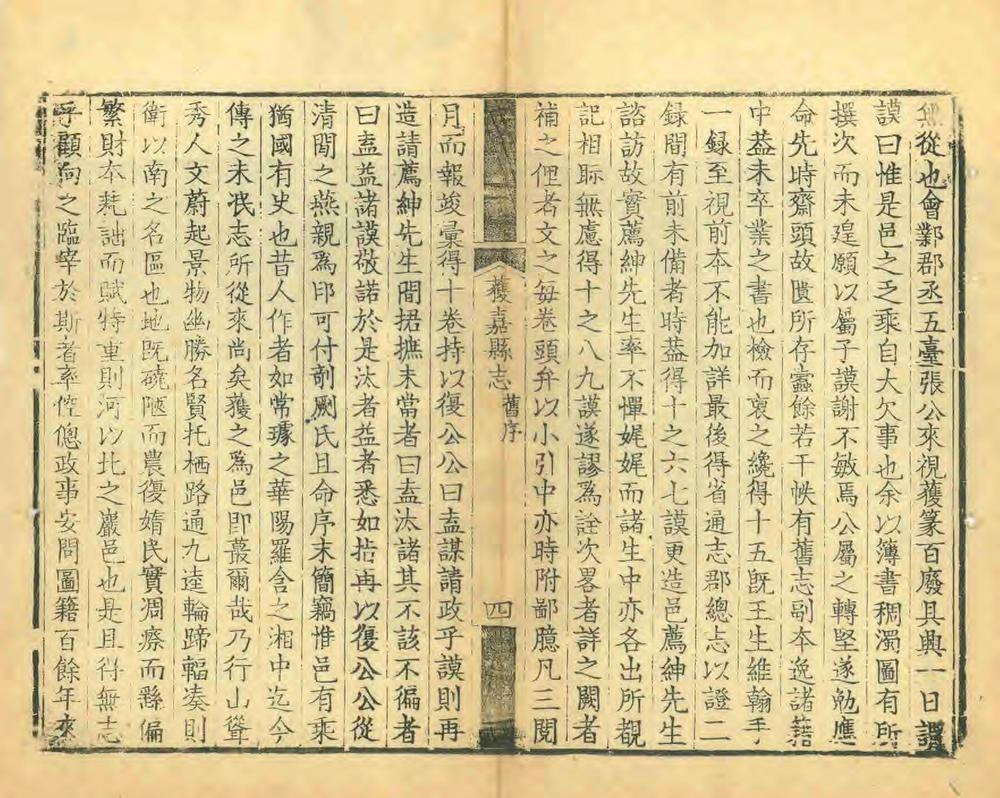 無從也會鄴郡丞五臺張公來視獲篆百廢具興一日謂
謨曰惟是邑之乏乘自大欠事也余以簿書稠濁圖有所
撰次而未遑願以屬子謨謝不敏焉公屬之轉堅遂勉應
命先時齋頭故匱所存蠹餘若干帙有舊志副本逸諸籍
中葢未卒業之書也檢而裒之纔得十五旣王生維翰手
一録至視前本不能加詳最後得省通志郡總志以證二
録間有前未備者時葢得十之六七謨更造邑薦紳先生
諮訪故實薦紳先生率不憚娓娓而諸生中亦各出所覩
記相眎無慮得十之八九謨遂謬爲詮次畧者詳之闕者
補之俚者文之每卷頭弁以小引中亦時附鄙臆凡三閱
獲嘉縣志
舊序
四
月而報竣彙得十卷持以復公公曰盍謀請政乎謨則再
造請薦紳先生間捃摭未當者曰盍汰諸其不該不徧者
曰盍益諸謨敬諾於是汰者益者悉如指再以復公公從
清閒之燕親爲印可付剞劂氏且命序末簡竊惟邑有乘
猶國有史也昔人作者如常璩之華陽羅含之湘中迄今
傳之未泯志所從來尚矣獲之爲邑即蕞爾哉乃行山聳
秀人文蔚起景物幽勝名賢托栖路通九逵輪蹄輻湊則
衛以南之名區也地旣磽陋而農復媠民實凋瘵而繇偏
繁財本耗詘而賦特重則河以北之巖邑也是且得無志
乎顧向之臨宰於斯者率倥傯政事安問圖籍百餘年來